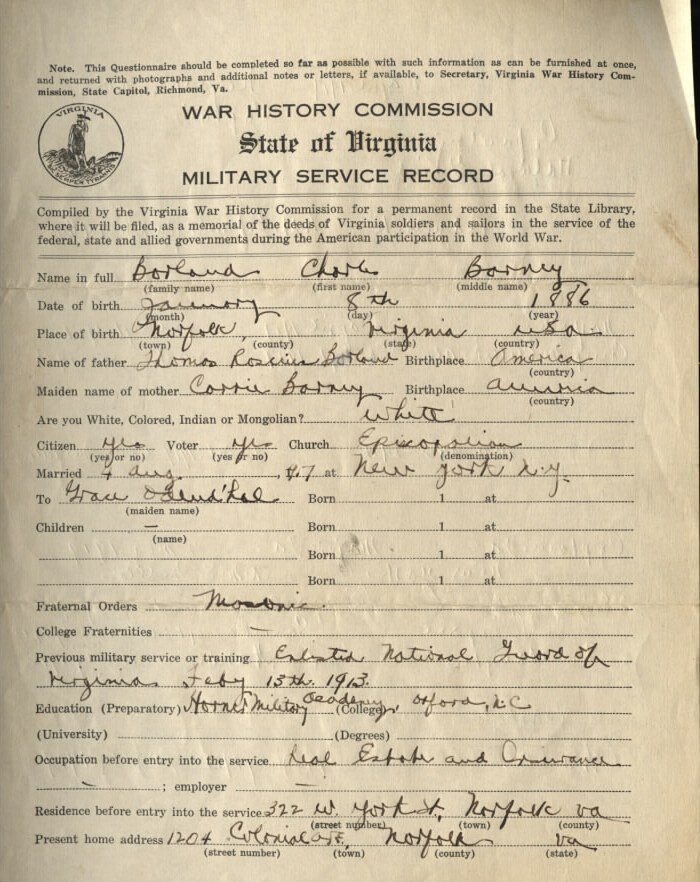 Note. This Questionnaire should be completed so far as possible with such information as can be furnished at once,
and returned with photographs and additional notes or letters, if available, to Secretary, Virginia War History Com-
mission, State Capitol, Richmond, Va.
VIRGINIA
SIC SEMPER TYRANNIS
WAR HISTORY COMMISSION
State of Virginia
MILITARY SERVICE RECORD
Compiled by the Virginia War History Commission for a permanent record in the State Library,
where it will be filed, as a memorial of the deeds of Virginia soldiers and sailors in the service of the
federal, state and allied governments during the American participation in the World War.
Name in full Borland Charles Barney
(family name) (first name) (middle name)
Date of birth January 8th 1886
(month) (day) (year)
Place of birth Norfolk, Virginia USA.
(town) (county) (state) (country)
Name of father Thomas Roscius Borland Birthplace America
(country)
Maiden name of mother Carrie Barney Birthplace America
(country)
Are you White, Colored, Indian or Mongolian? White
Citizen yes Voter yes Church Episcopalian
(yes or no) (yes or no) (denomination)
Married 4 Aug. at New York N.Y.
To Grace Born 1 at
(maiden name)
Children — Born 1 at
(name)
Born 1 at
Born 1 at
Fraternal Orders Masonic.
College Fraternities —
Previous military service or training Enlisted National Guard of
Virginia Feby 13th. 1913.
Education (Preparatory) Horner Military Academy, (College) Oxford, N.C
(University) (Degrees)
Occupation before entry into the service Real Estate and Insurance
— ; employer —
Residence before entry into the service 322 W. York St, Norfolk Va
(street number) (town) (county)
Present home address 1204 Colonial Ave, Norfolk Va
(street number) (town) (county) (state)